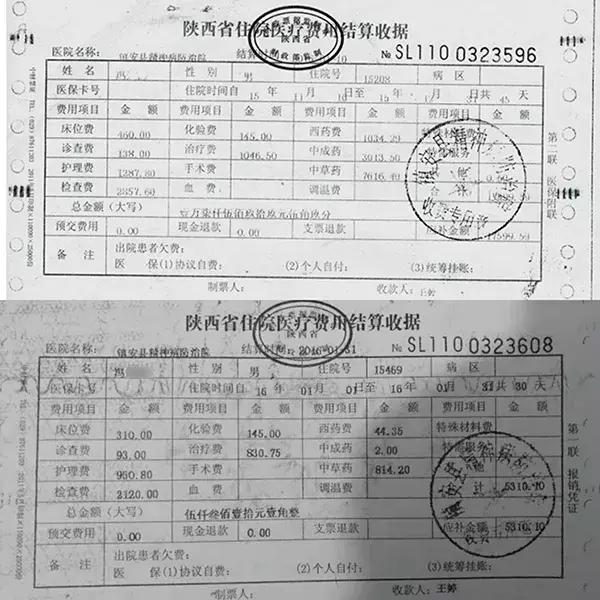 陕西省住院医疗费用结算收据
医院名称： 镇安县精神病防治院 结算时间 10 № SL110 0323596
姓 名 冯 性 别 男 住院号 15208 病 区
医保卡号 住院时间自 15 年 11 月 日至 15 年 12 月 31 日共 45 天
费用项目 金 额 费用项目 金 额 费用项目 金 额
床位费 460.00 化验费 145.00 西药费 1034.29
诊查费 138.00 治疗费 1046.50 中成药 3013.50
护理费 1287.80 手术费 中草药 7616.40
检查费 2857.60 血 费 调温费
总金额（大写） 壹万柒仟伍佰玖拾玖元伍角玖分
预交费用 0.00 现金退款 0.00 支票退款 应补金额 17599.59
备 注 出院患者欠费：
医 保(1)协议自费： (2)个人自付： (3)统筹挂账：
制票人： 收款人： 王婷
第二联 医保附联
收费专用章
陕西省住院医疗费用结算收据
医院名称： 镇安县精神病防治院 结算时间 2016-01-31 № SL110 0323608
姓 名 冯 性 别 男 住院号 15469 病 区
医保卡号 住院时间自 16 年 01 月 01 日至 16 年 01 月 31 日共 30 天
费用项目 金 额 费用项目 金 额 费用项目 金 额
床位费 310.00 化验费 145.00 西药费 44.35 特殊材料费
诊查费 93.00 治疗费 830.75 中成药 2.00 特需服务
护理费 950.80 手术费 中草药 814.20
检查费 2120.00 血 费 调温费 计 5310.10
总金额（大写） 伍仟叁佰壹拾元壹角整
预交费用 0.00 现金退款 0.00 支票退款 应补金额 5310.10
备 注 出院患者欠费：
医 保(1)协议自费： (2)个人自付： (3)统筹挂账：
制票人： 收款人： 王婷
第一联 报销凭证